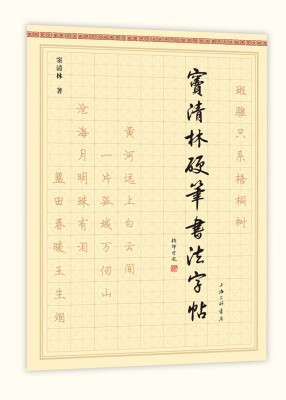 斑骓只系梧桐树
上海三联书店
竇清林硬筆書法字帖
黄河远上白云间
一片孤城万仞山
沧海月明珠有泪
蓝田春暖玉生烟
窦清林 著